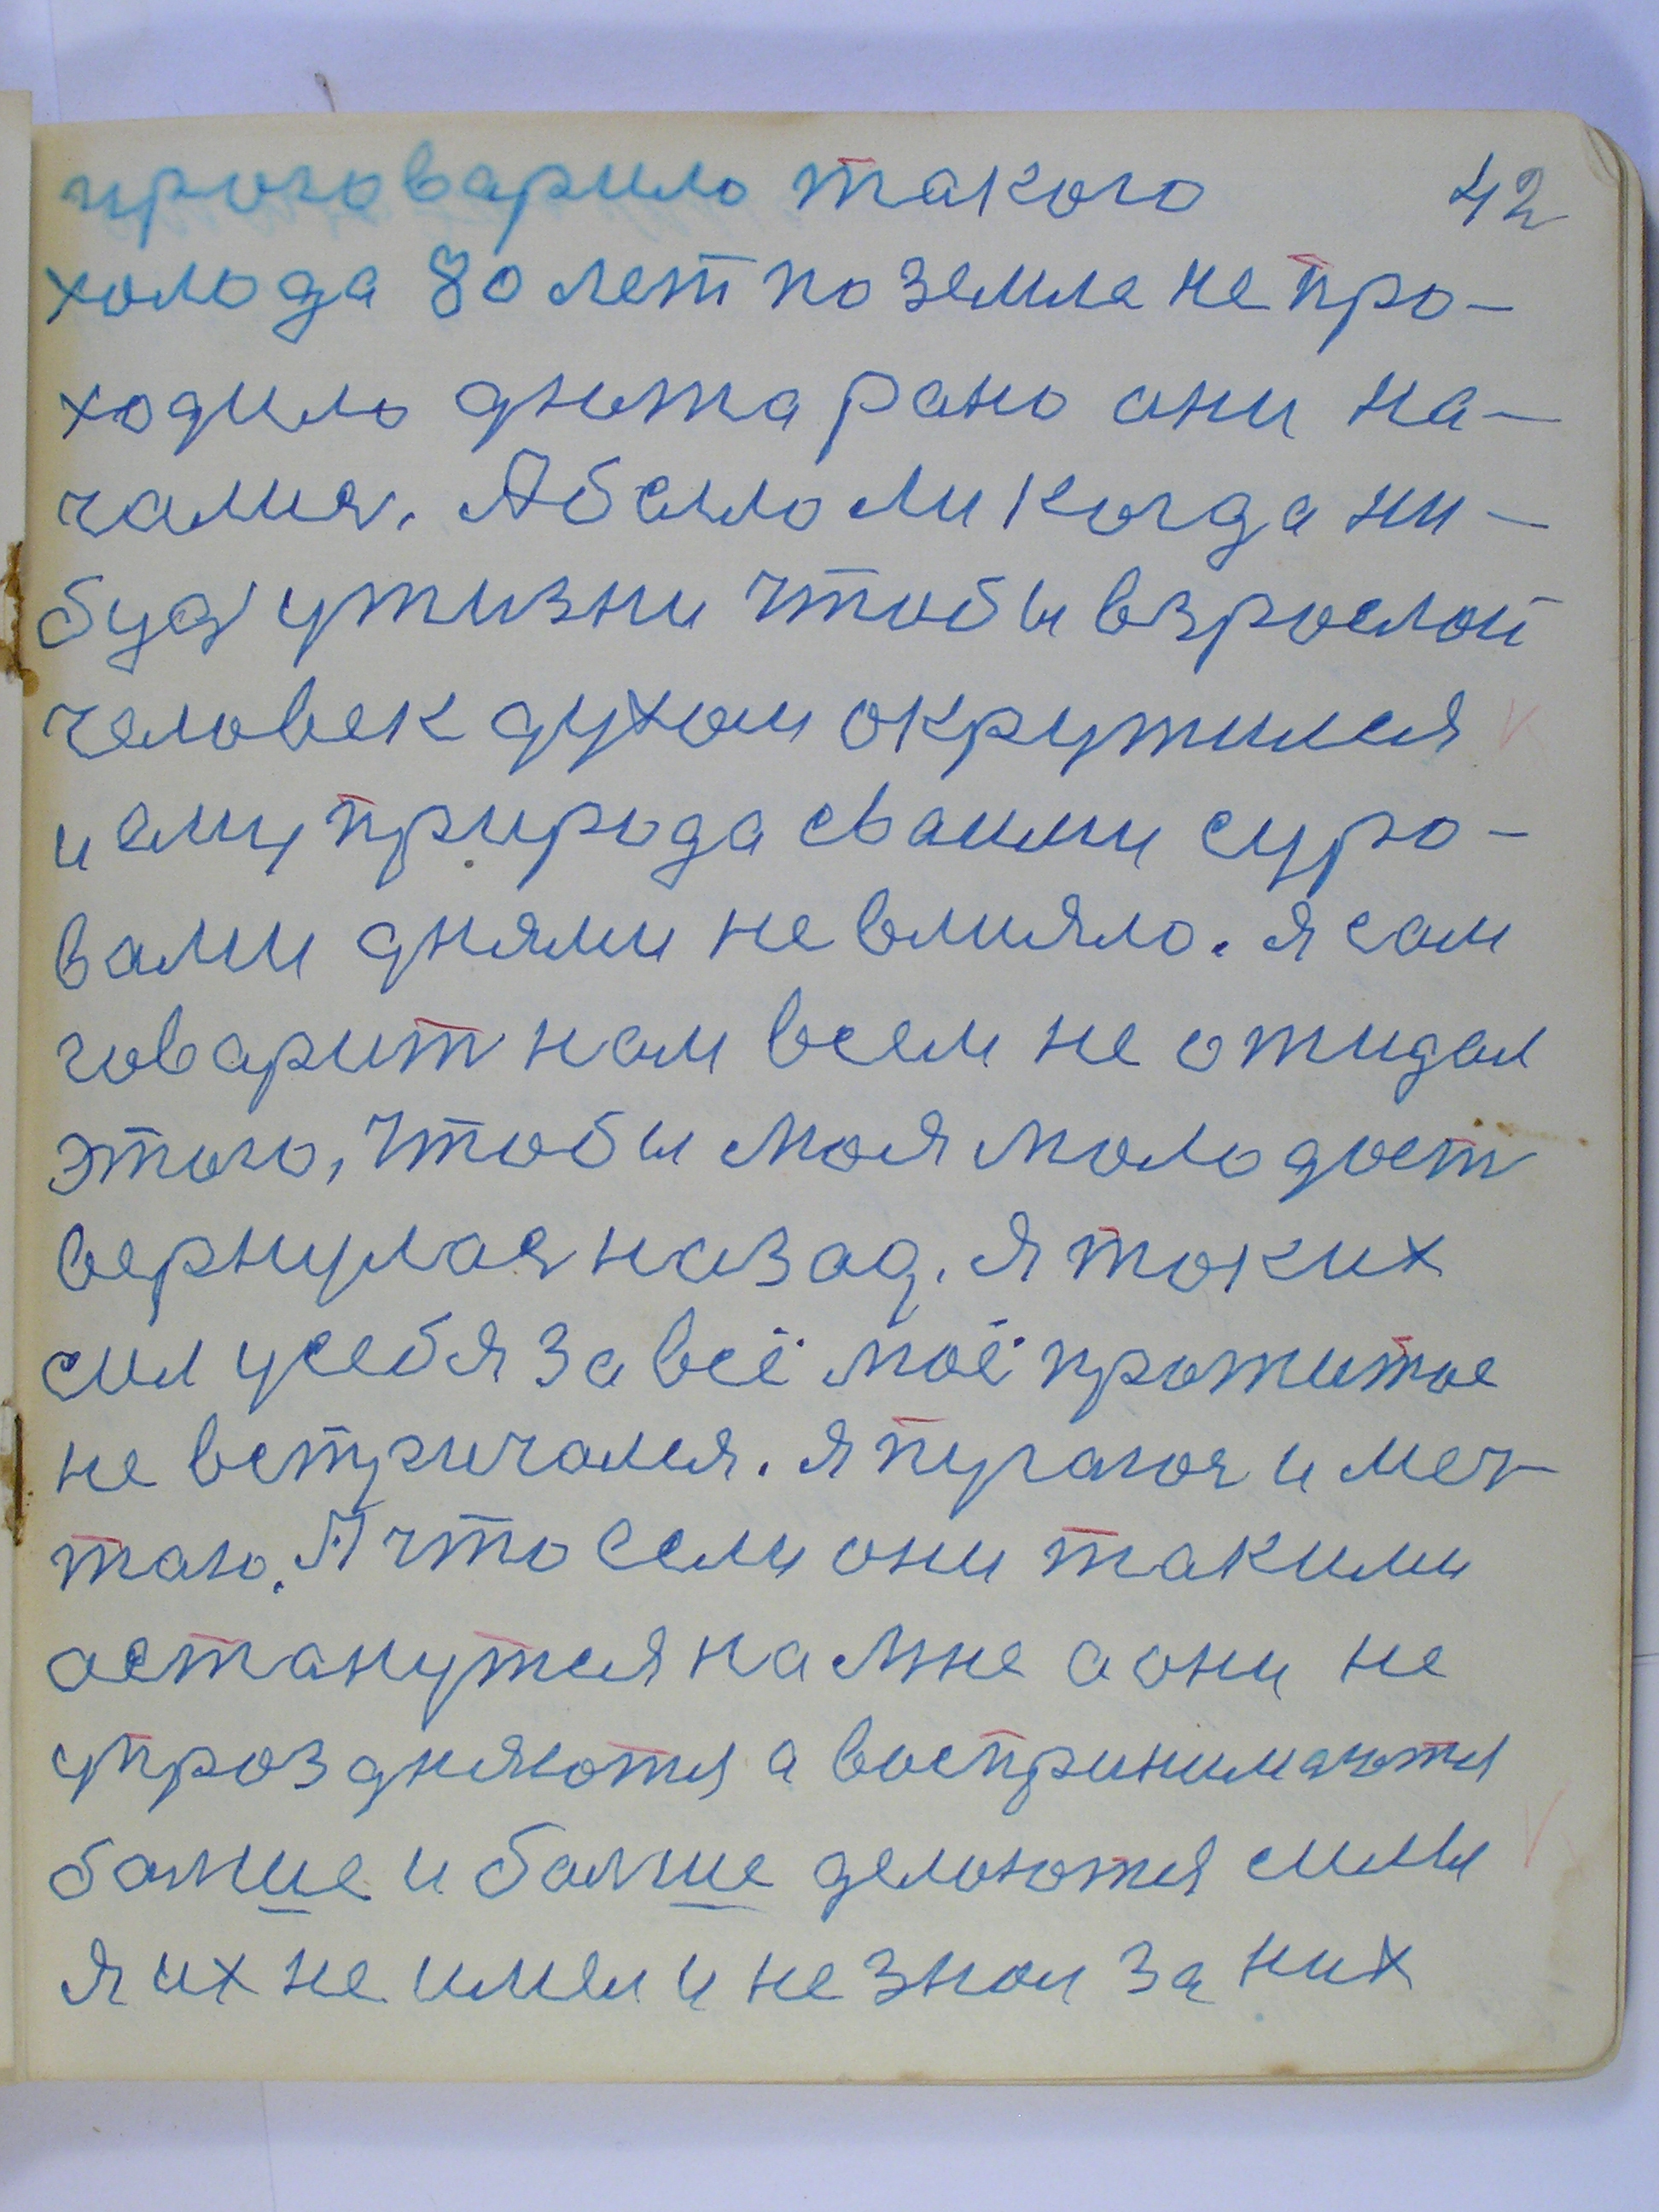 проговарило такого 42
холода 80 лет по земле не про-
ходило дюжа рано они на-
чалися. А было ли когда ни-
будь у жизни чтобы взрослой
человек духом окружился
и ему природа сваими суро-
вами днями не влияло. Я сам
говарит нам всем не ожидал
этого, чтобы моя молодост
вернулася назад. Я таких
сил у себя за всё моё прожитое
не встричался. Я пугаюся и меч-
таю. А что если они такими
астанутся на мне а они не
упроздняются а воспринимаются
балше и балше делаются силы
я их не имел и не знал за них